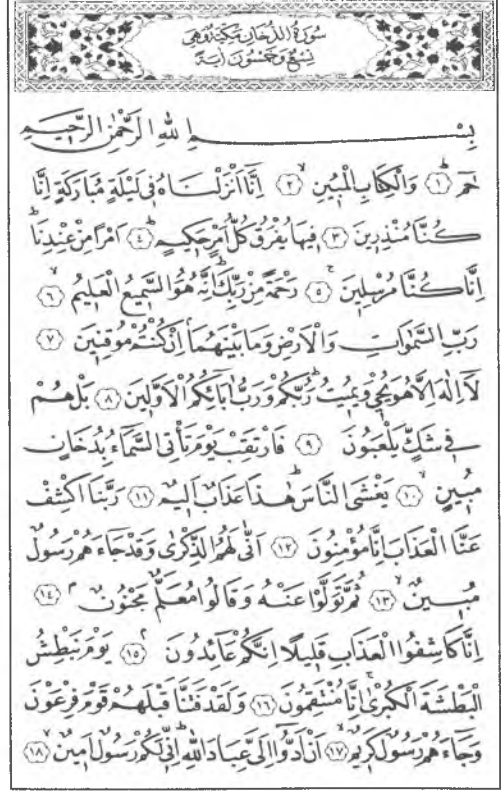 سُورَةُ الدُّخَانِ مَكِّيَّةٌ وَهِيَ
تِسْعٌ وَخَمْسُونَ اٰيَةً
بِسْمِ اللهِ الرَّحْمٰنِ الرَّحِيمِ
حٰمٓ ﴿١﴾ وَالْكِتَابِ الْمُبِينِ ﴿٢﴾ اِنَّٓا اَنْزَلْنَاهُ فِى لَيْلَةٍ مُبَارَكَةٍ اِنَّا
كُنَّا مُنْذِرِينَ ﴿٣﴾ فِيهَا يُفْرَقُ كُلُّ اَمْرٍ حَكِيمٍ ﴿٤﴾ اَمْرًا مِنْ عِنْدِنَا
اِنَّا كُنَّا مُرْسِلِينَ ﴿٥﴾ رَحْمَةً مِنْ رَبِّكَ اِنَّهُ هُوَ السَّمِيعُ الْعَلِيمُ ﴿٦﴾
رَبِّ السَّمٰوَاتِ وَالْاَرْضِ وَمَا بَيْنَهُمَا اِنْ كُنْتُمْ مُوقِنِينَ ﴿٧﴾
لَٓا اِلٰهَ اِلَّا هُوَ يُحْيٖ وَيُمِيتُ رَبُّكُمْ وَرَبُّ اٰبَٓائِكُمُ الْاَوَّلِينَ ﴿٨﴾ بَلْ هُمْ
فِى شَكٍّ يَلْعَبُونَ ﴿٩﴾ فَارْتَقِبْ يَوْمَ تَأْتِى السَّمَٓاءُ بِدُخَانٍ
مُبِينٍ ﴿١٠﴾ يَغْشَى النَّاسَ هٰذَا عَذَابٌ اَلِيمٌ ﴿١١﴾ رَبَّنَا اكْشِفْ
عَنَّا الْعَذَابَ اِنَّا مُؤْمِنُونَ ﴿١٢﴾ اَنّٰى لَهُمُ الذِّكْرٰى وَقَدْ جَٓاءَهُمْ رَسُولٌ
مُبِينٌ ﴿١٣﴾ ثُمَّ تَوَلَّوْا عَنْهُ وَقَالُوا مُعَلَّمٌ مَجْنُونٌ ﴿١٤﴾
اِنَّا كَاشِفُوا الْعَذَابِ قَلِيلًا اِنَّكُمْ عَٓائِدُونَ ﴿١٥﴾ يَوْمَ نَبْطِشُ
الْبَطْشَةَ الْكُبْرٰى اِنَّا مُنْتَقِمُونَ ﴿١٦﴾ وَلَقَدْ فَتَنَّا قَبْلَهُمْ قَوْمَ فِرْعَوْنَ
وَجَٓاءَهُمْ رَسُولٌ كَرِيمٌ ﴿١٧﴾ اَنْ اَدُّٓوا اِلَىَّ عِبَادَ اللهِ اِنِّى لَكُمْ رَسُولٌ اَمِينٌ ﴿١٨﴾